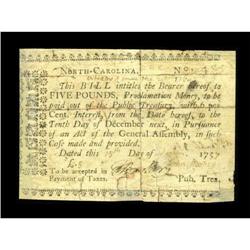 NORTH-CAROLINA. No
This BILL intitles the Bearer hereof to
FIVE POUNDS, Proclamation Money, to be
paid out of the Public Treasury, with 6 per
Cent. Interest, from the Date hereof, to the
Tenth Day of December next, in Pursuance
of an Act of the General Assembly, in such
Case made and provided.
Dated this Day of 1757
£.5
To be accepted in
Payment of Taxes. Pub. Trea.